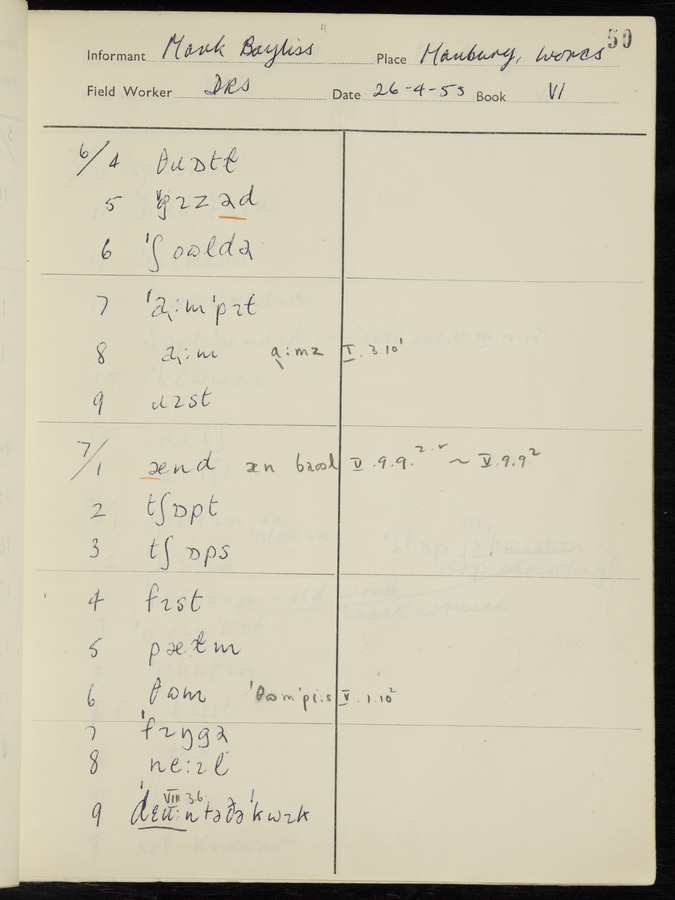 50
Informant Mark Bayliss Place Hanbury, Worcs
Field Worker DRS Date 26-4-55 Book VI
6/4 θɹɒtɫ
5 ˈgɪzəd
6 ˈʃoʊldə
7 ˈɑ̹ːmˈpɪt
8 ɑ̹ːm ɑ̹ːmz I.3.10¹
9 ɹɪst
7/1 ænd æn V.9.9. ~ V.9.9²
2 tʃɒpt
3 tʃɒps
4 fɪst
5 pætm
6 θʊm ˈθʊmˈpiːs V.1.10²
7 ˈfɪŋgə
8 neːɪl
9 VIII 3.6